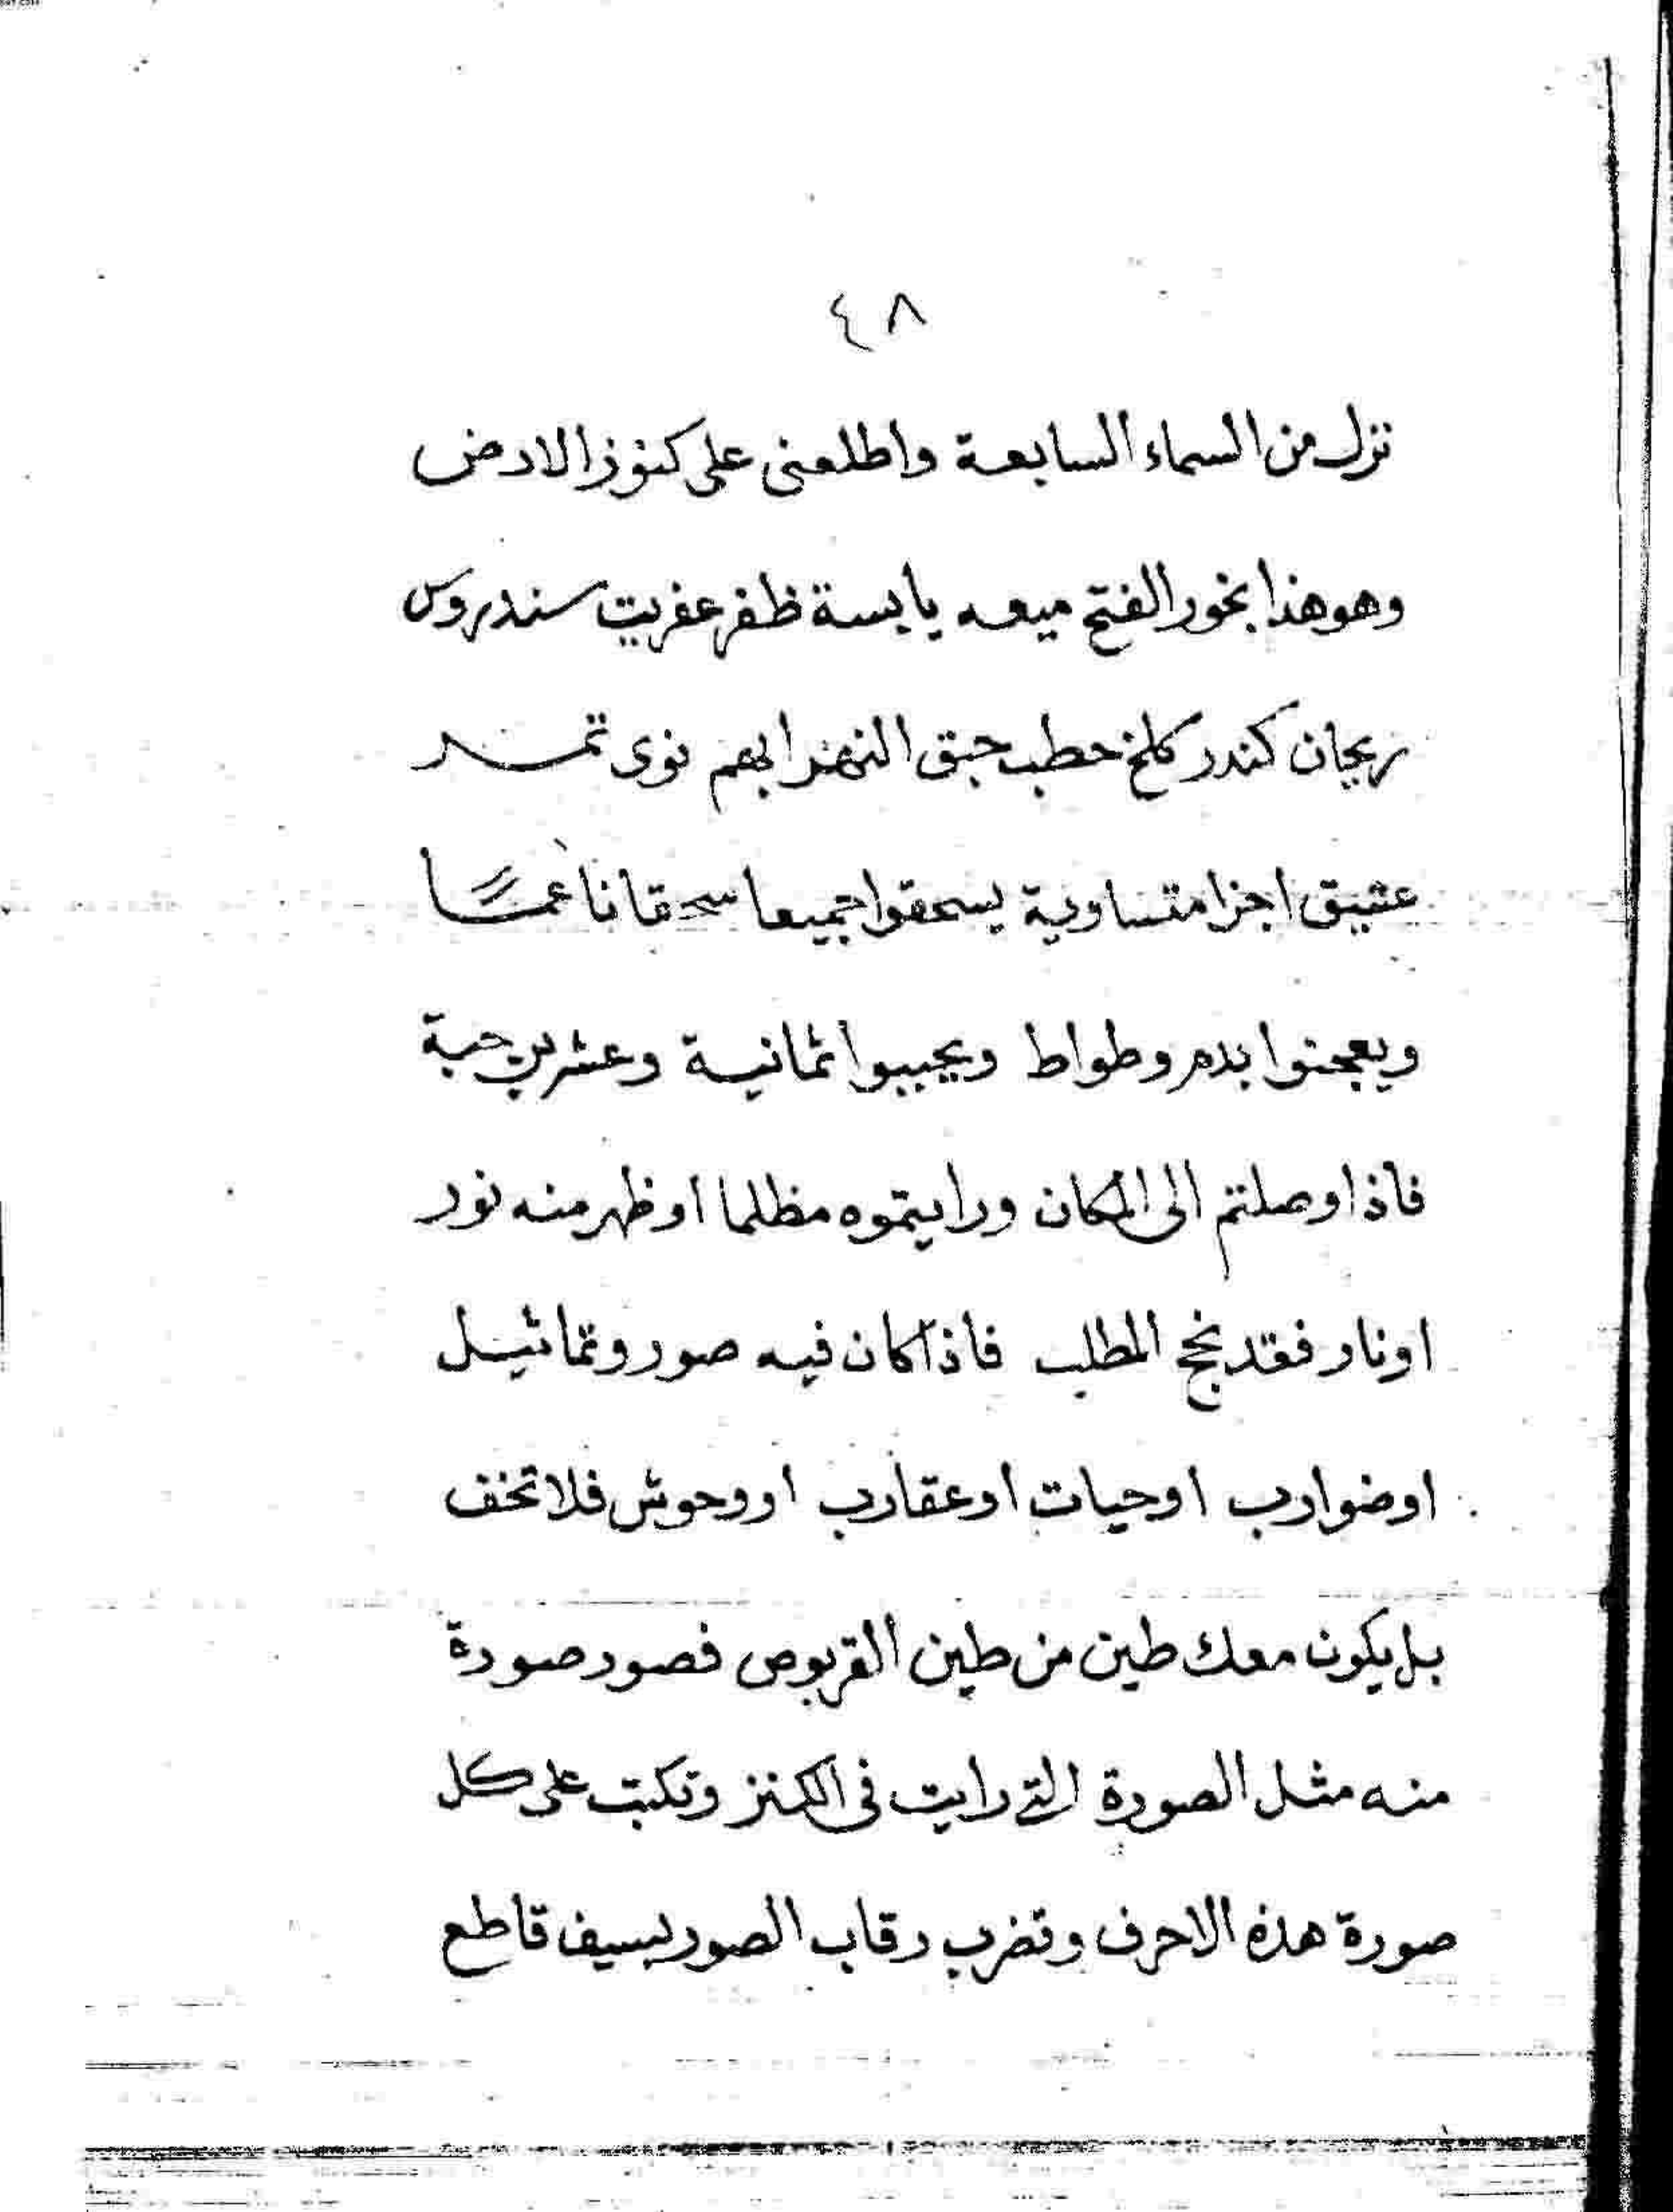 ٤٨
نزل من السماء السابعة واطلعنى على كنوز الارض
وهو هذا بخور الفتح ميعه يابسة ظفر عفريت سندروس
ريحان كندر كلخ حطب حبق النهر ابهم نوى تمر
عتيق اجزا متساوية يسحقوا جميعا سحقا ناعمًا
ويعجنوا بدم وطواط ويحببوا ثمانية وعشرين حبة
فاذا وصلتم الى المكان ورايتموه مظلما او ظهر منه نور
او نار فقد نجح المطلب فاذا كان فيه صور وتماثيل
او ضوارب او حيات او عقارب او وحوش فلا تخف
بل يكون معك طين من طين القربوص فصور صورة
منه مثل الصورة التى رايت فى الكنز وتكتب على كل
صورة هذه الاحرف وتضرب رقاب الصور بسيف قاطع